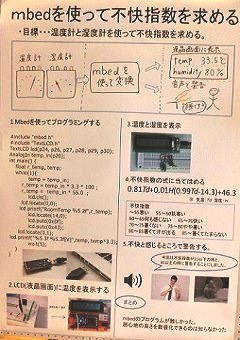 mbedを使って不快指数を求める
・目標・・・温度計と湿度計を使って不快指数を求める。
温度計 湿度計
mbedを
使って変換
液晶画面に表示
temp 33.5℃
humidity 80%
音声で警告
1.Mbedを使ってプログラミングする
#include "mbed.h"
#include "TextLCD.h"
TextLCD lcd(p24, p26, p27, p28, p29, p30);
AnalogIn temp_in(p20);
int main() {
float r_temp;
while(1){
temp = temp_in;
r_temp = temp_in * 3.3 * 100 ;
lcd.cls();
lcd.locate(0,0);
2.LCD(液晶画面)に温度を表示する
3.温度と湿度を表示
4.不快指数の式に当てはめる
0.81Td+0.01H(0.99Td-14.3)+46.3
不快指数
～55寒い 55～60肌寒い
60～65何も感じない 65～70快い
70～75暑くない 75～80やや暑い
80～85暑くて汗が出る 85～暑くてたまらない
5.不快と感じるところで警告する。
まとめ
mbedのプログラムが難しかった。
居心地の良さを数値化できるのは知らなかった